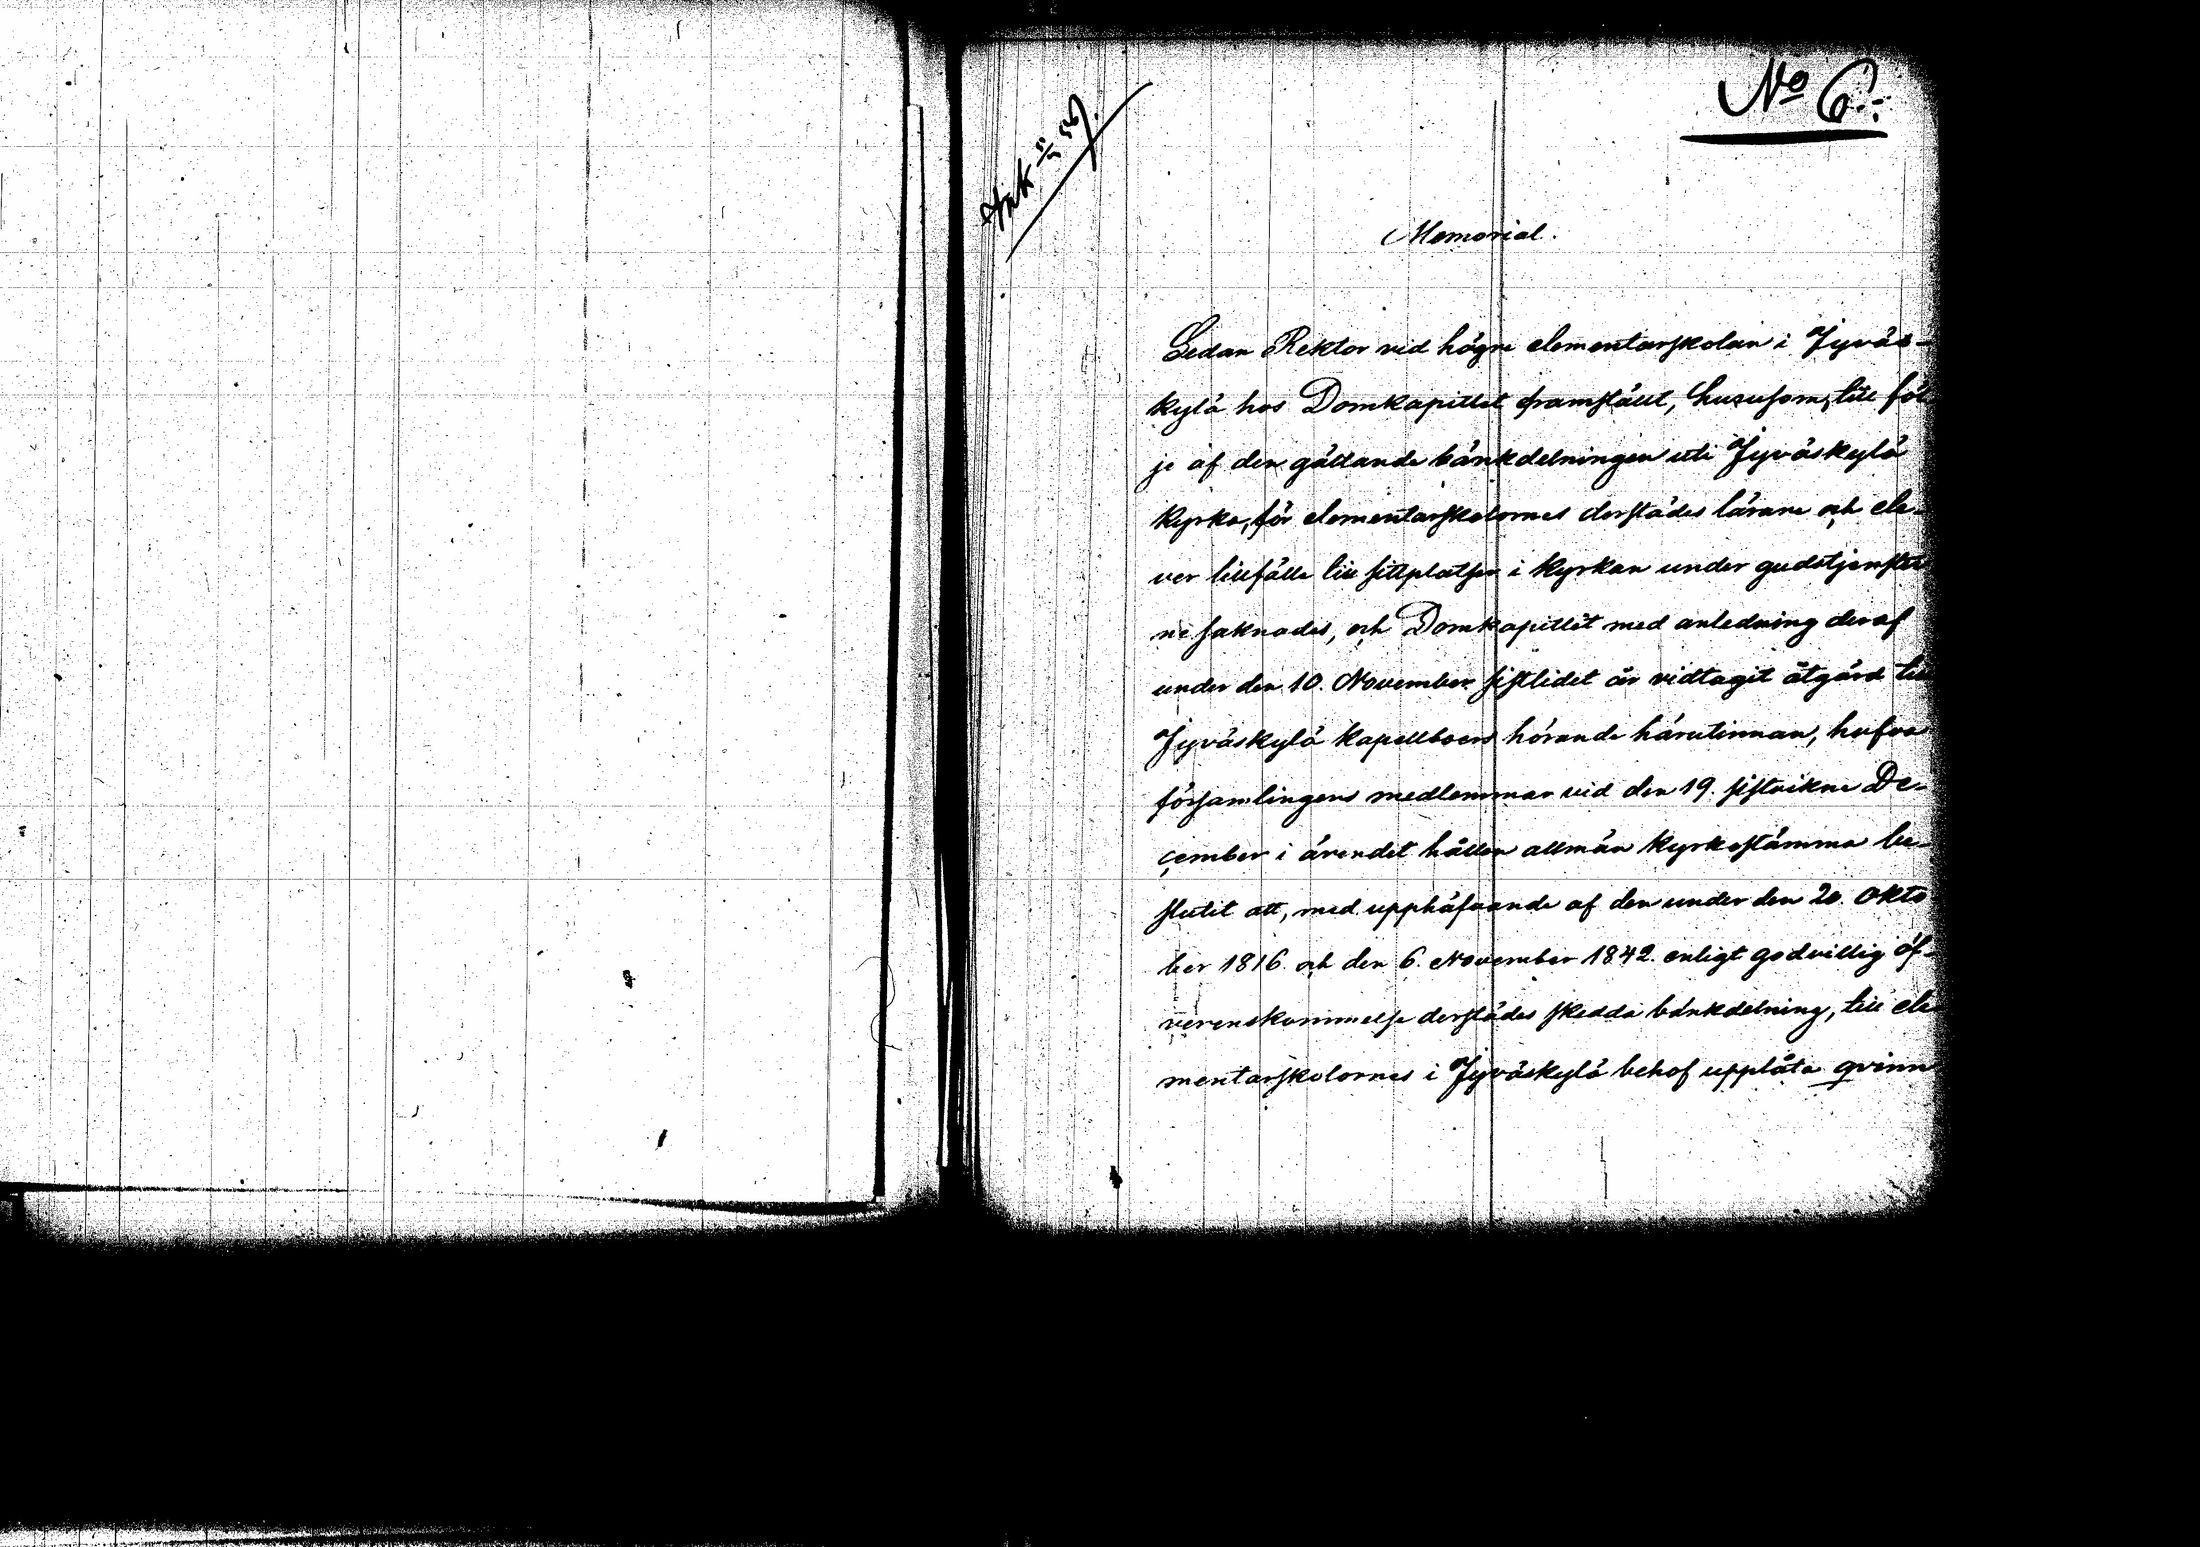 No 6.
Ank
Memorial.
Sedan Rektor vid högre elementarskolan i Jyväs-
kylä hos Domkapitlet framstält, hurusom, till föl-
je af den gällande bänkdelningen uti Jyväskylä
kyrka, för elementarskolornes derstädes lärare och ele-
ver tillfälle till sittplatser i kyrkan under gudstjenster
ne saknades, och Domkapitlet med anledning deraf
under den 10. November sistlidet år vidtagit åtgärd till
Jyväskylä kapellboers hörande härutinnan, hafva
församlingens medlemmar vid den 19. sistvikne De-
cember i ärendet hållen allmän kyrkostämma be-
slutit att, med upphäfvande af den under den 20. Okto
ber 1816. och den 6. November 1842. enligt godvillig öf-
verenskommelse derstädes skedda bänkdelning, till ele
mentarskolornes i Jyväskylä behof upplåta qvinn